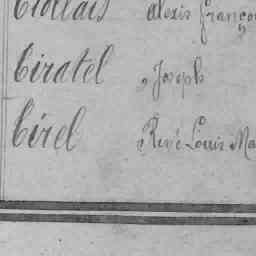 alexis Franço
Ciratel " Joseph
Cirel " René Louis Ma